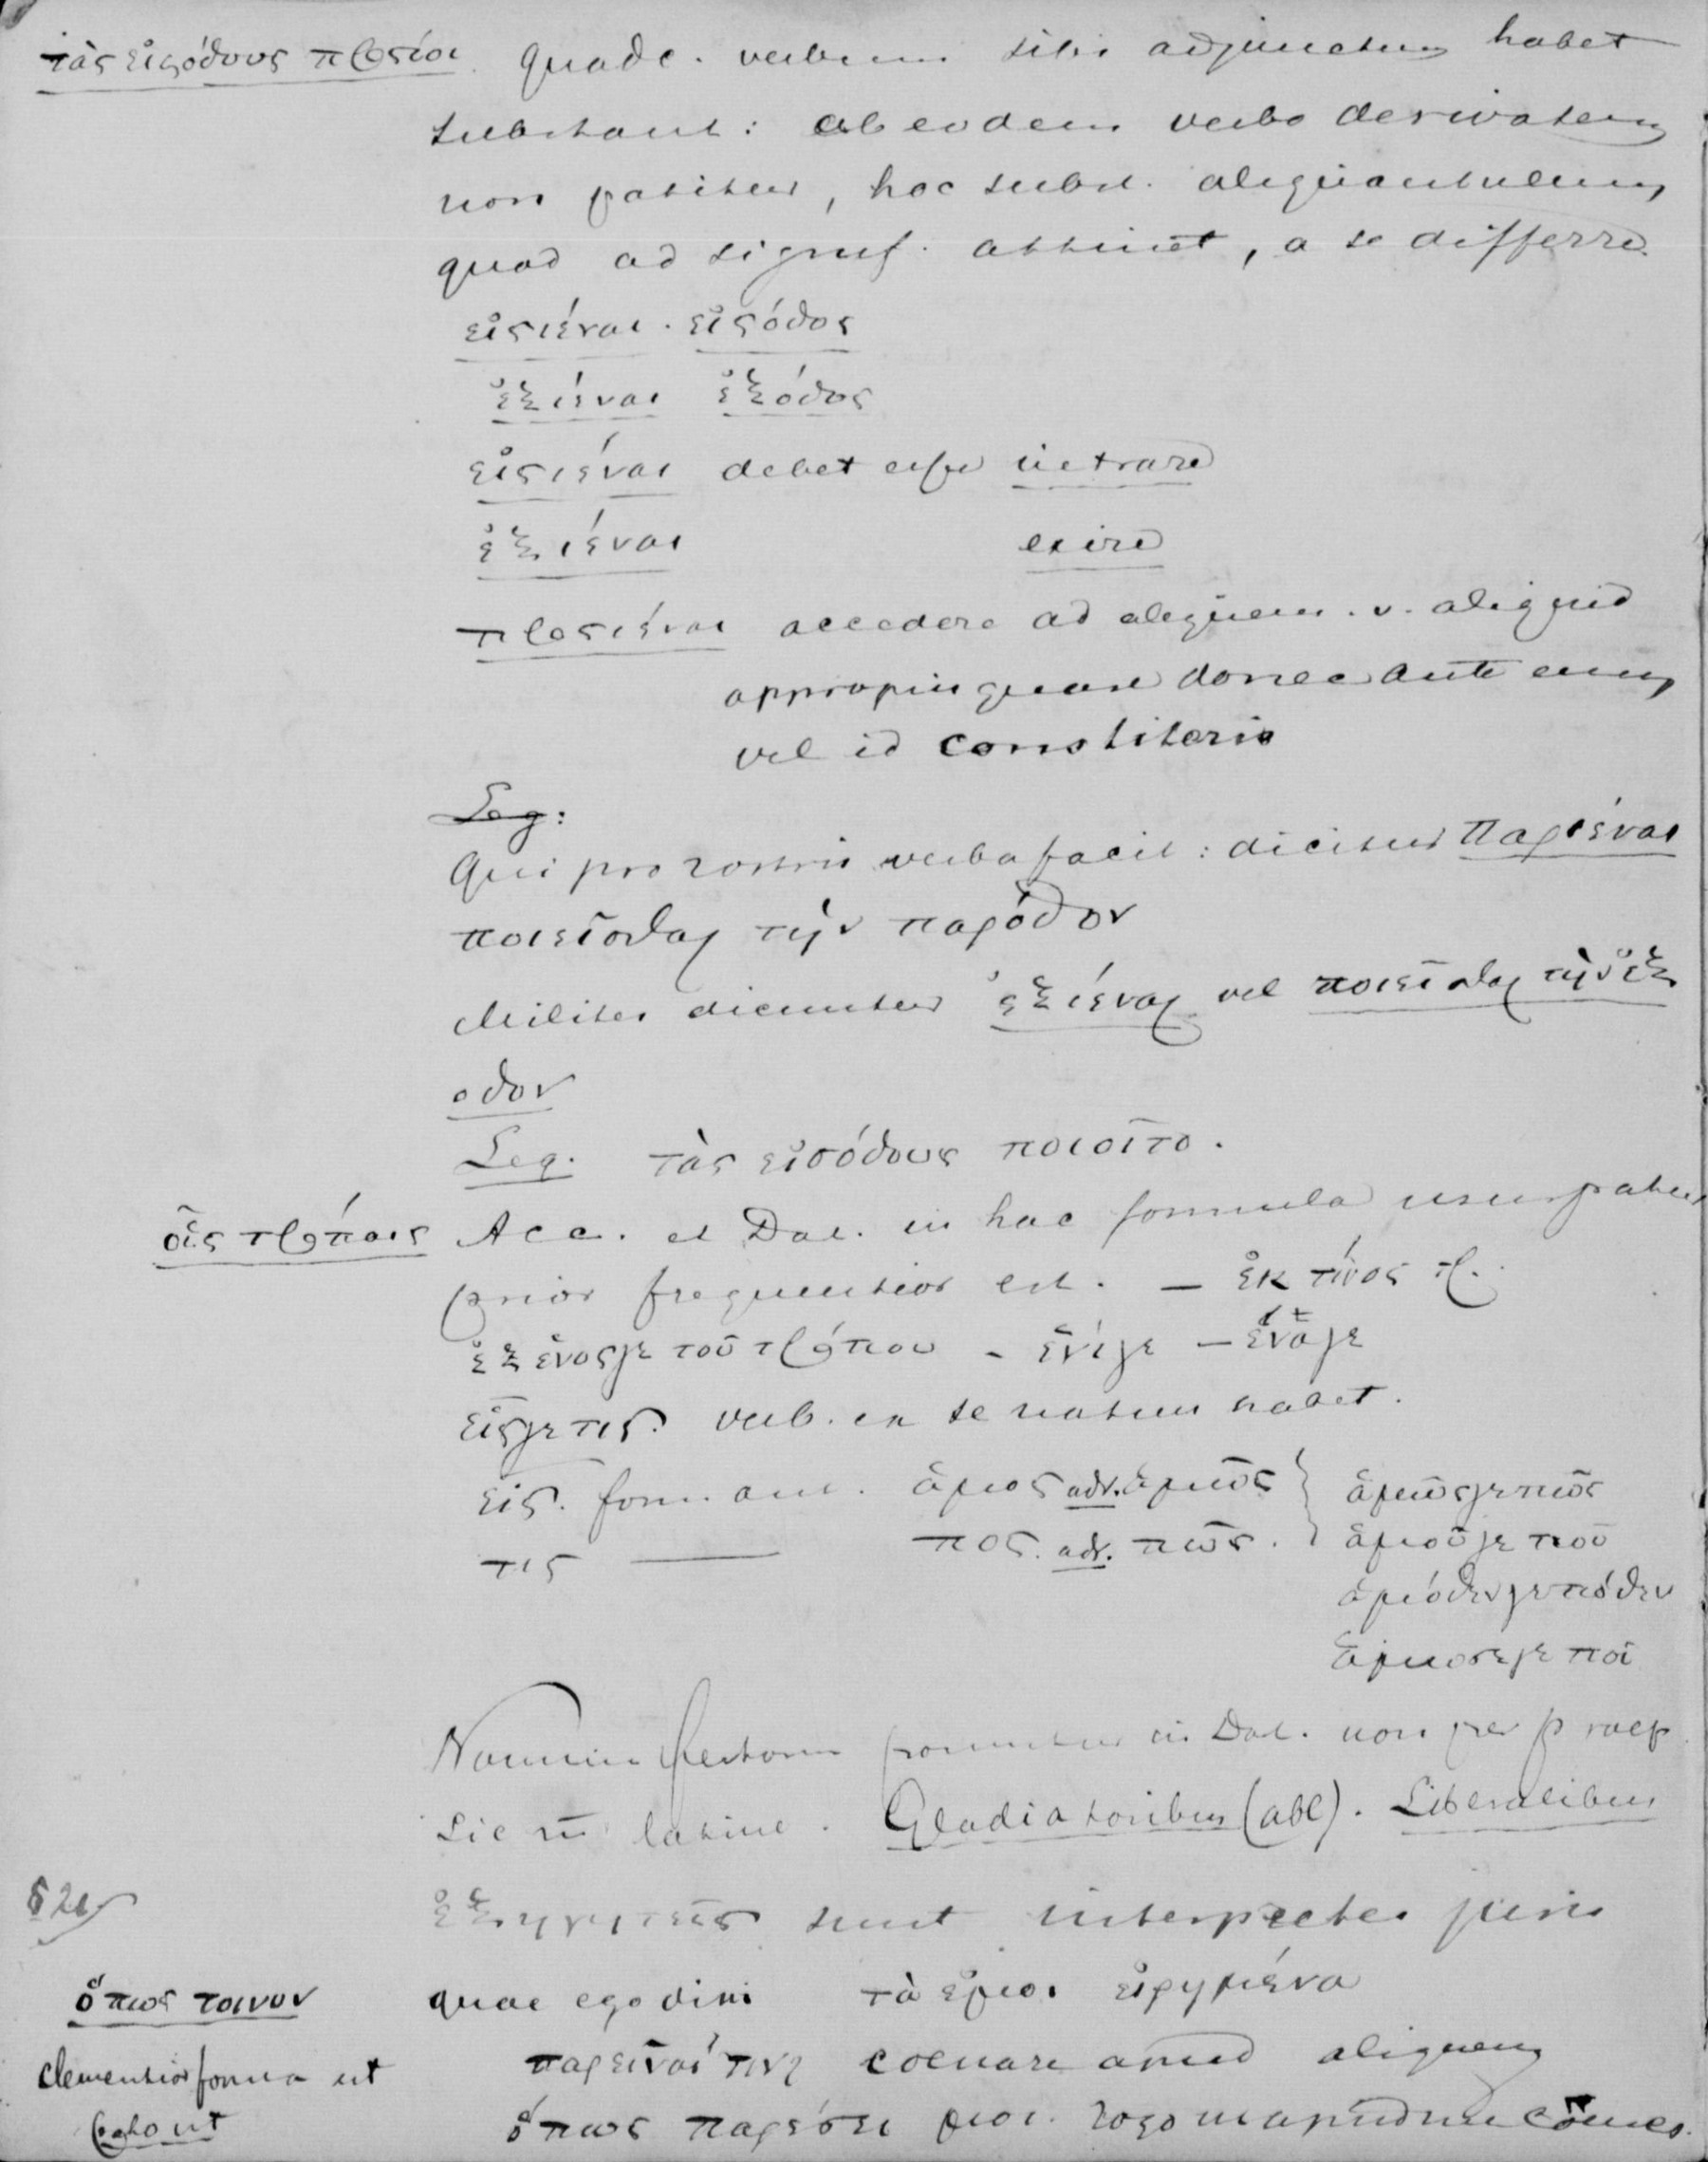 τὰς εἰςόδους προςίοι Quodc. verbum sibi adjunctum habet
substant: ab eodem verbo derivatum
non patitur, hoc subst. aliquantulum,
quod ad signif. attinet, a se differre.
εἰςιέναι. εἰςόδος
ἐξιέναι ἐξόδος
εἰςιέναι debet esse intrare
ἐξιέναι exire
προςιέναι accedere ad aliquem. v. aliquid
appropinquare donec ante eum
vel id constiteris
Leg:
Qui pro rostris verba facit: dicitur Παριέναι
ποιεῖσθαι τὴν παρόδον
Milites dicuntur ἐξιέναι vel ποιεῖσθαι τὴν ἐξ
οδον
Leg. τὰς εἰσόδους ποιοῖτο.
οἷς τρόποις Acc. et Dat. in hac formula usurpatur
prior frequentior est. — ἐκ τίνος τρ.
ἐξ ἑνός γε τοῦ τρόπου - ἑνί γε — ἕνα γε
εἷς γε τις. verb. ex se natum habet.
εἷς. form. ant. ἁμος adv. ἁμῶς } ἁμῶς γε πως
τις — πος. adv. πῶς. ἁμοῦ γε που
ἁμόθεν γε πόθεν
ἁμοσε γε ποῖ
Nomina festorum ponuntur in Dat. non per praep
Sic in latine. Gladiatoribus (abl). Liberalibus
§21
ἐξηγητεῖς sunt interpretes juris
ὅπως τοινυν quae ego dixi τὰ ἐμοι εἰρημένα
clementior forma ut παρεῖναί τινι coenare apud aliquem
rogo ut ὅπως παρέσει μοι. rogo ut apud me coenes.